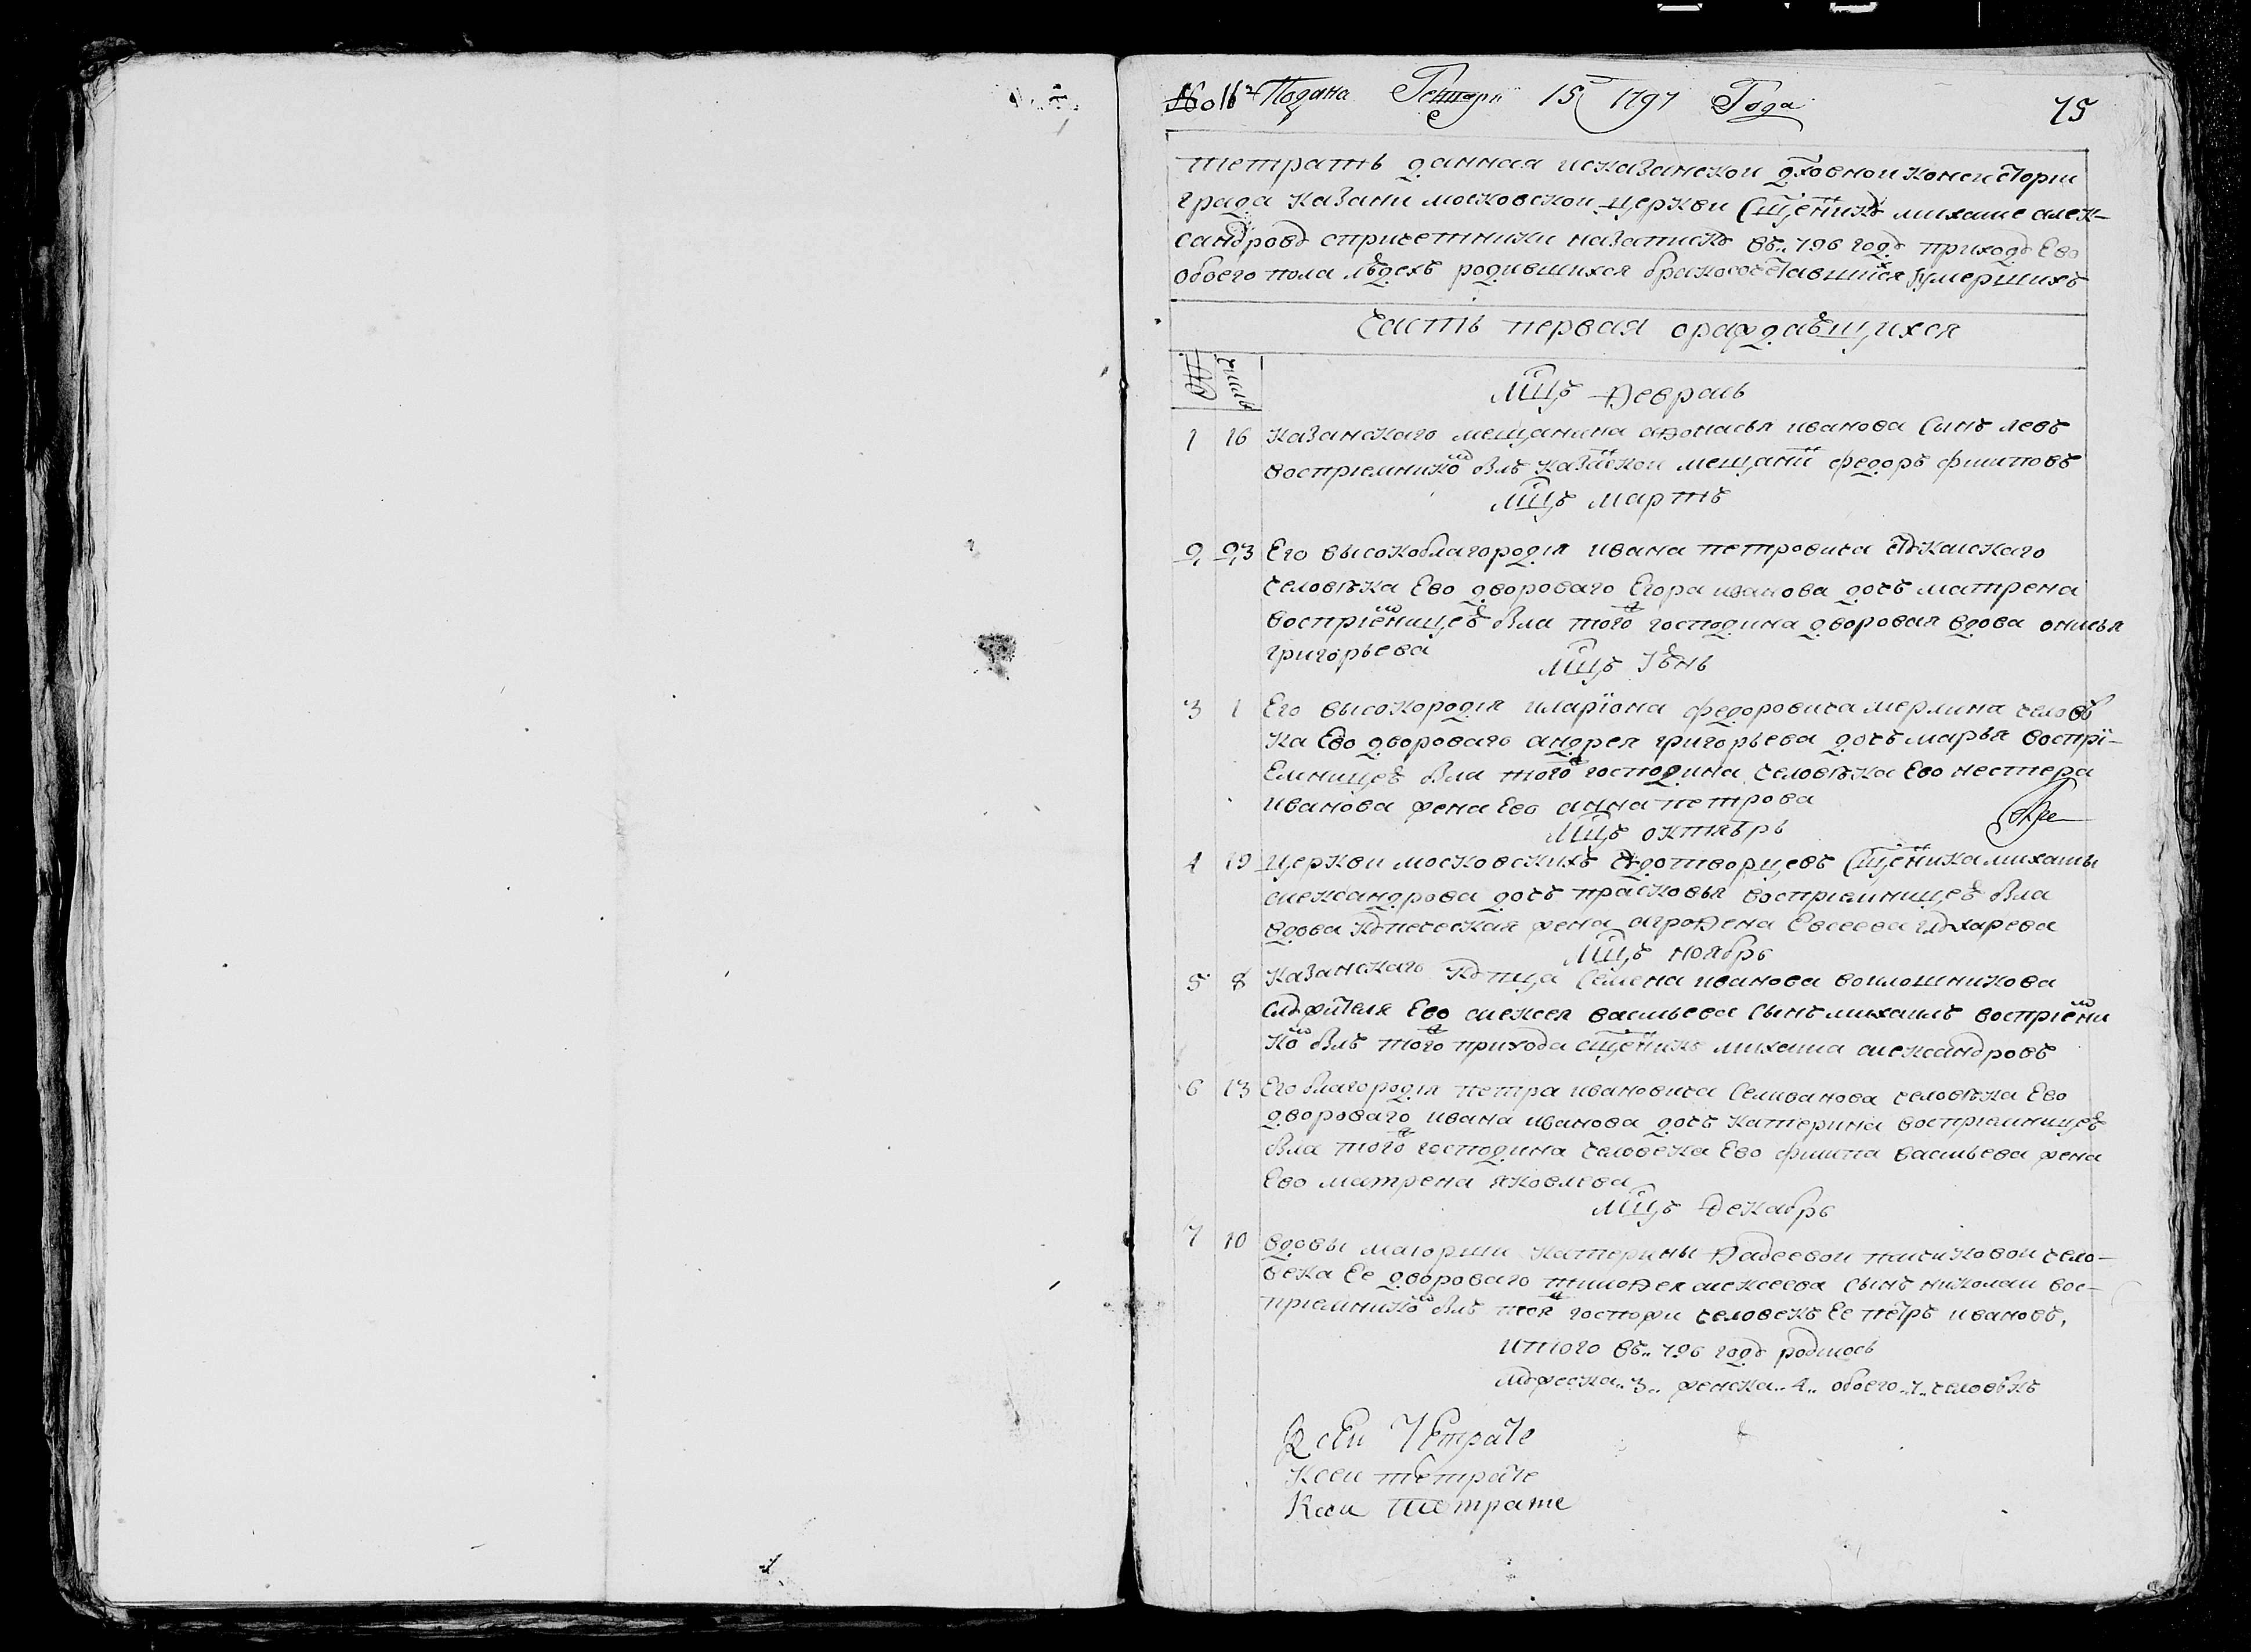 № 16 Подана Генваря 15 1797 Года
75
тетрать данная исказанской дховной консистории
града казани московской церкви сщеннику михаиле алек-
сандрову спричетники назаписку въ 796 году приходу Ево
обоего пола людехъ родившихся бракосочетавшихся и умерших
часть первая ораждающихся
числа
мцъ Февраль
1 16 казанскаго мещанина афонасья иванова сынъ левъ
воспріемникомъ былъ казанской мещанинъ федоръ филиповъ
мцъ мартъ
2 23 Его высокоблагородія ивана петровича
человѣка Ево двороваго Егора иванова дочь матрена
воспріемницею была того господина дворовая вдова онисья
григорьева
мцъ Іюнь
3 1 Его высокородія иларіона федоровича мерлина человѣ
ка Ево двороваго андрея григорьева дочь марья воспрі-
емницею была того господина человѣка Ево нестера
иванова жена Ево анна петрова
мцъ октябрь
4 19 церкви московскихъ чюдотворцевъ сщенника михаилы
александрова дочь прасковья воспріемницею была
вдова купеческая жена агрофена Евсеева глухарева
мцъ ноябрь
5 8 казанскаго купца семена иванова воилошникова
служителя Ево алексея васильева сынъ михаилъ воспріемни
комъ былъ того прихода сщенникъ михаила александровъ
6 13 Его благородія петра ивановича селиванова человѣка Ево
двороваго ивана иванова дочь катерина воспріемницею
была того господина человека Ево филипа васильева жена
Ево матрена яковлева
мцъ декабрь
7 10 вдовы маіорши катерины Фадеевои пичиковои чело-
века Ее двороваго тимофея алексеева сынъ николаи вос-
пріемникомъ былъ тоя госпожи человекъ Ее петръ ивановъ,
итого въ 796 году родилось
мужеска 3 женска 4 обоего 7 человѣкъ
К сеи Тетрате
Ксеи тетрате
Ксеи тетрате